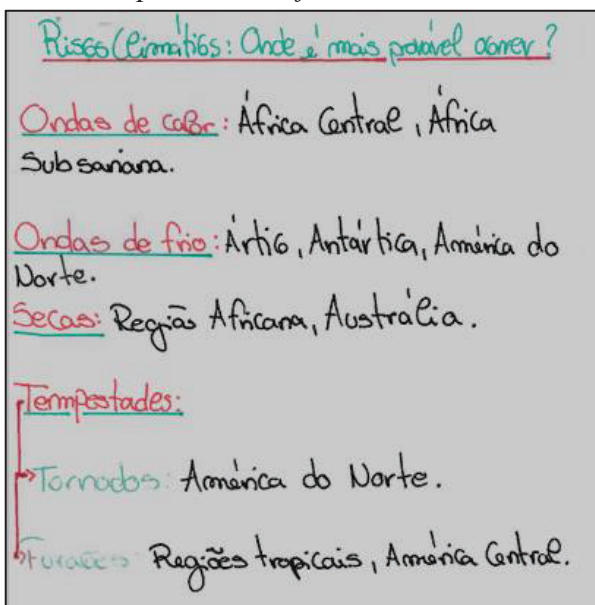 Riscos Climáticos: Onde é mais provável ocorrer?
Ondas de calor: África Central, África
Subsariana.
Ondas de frio: Ártico, Antártica, América do
Norte.
Secas: Região Africana, Austrália.
Tempestades:
Tornados: América do Norte.
Furacões: Regiões tropicais, América Central.